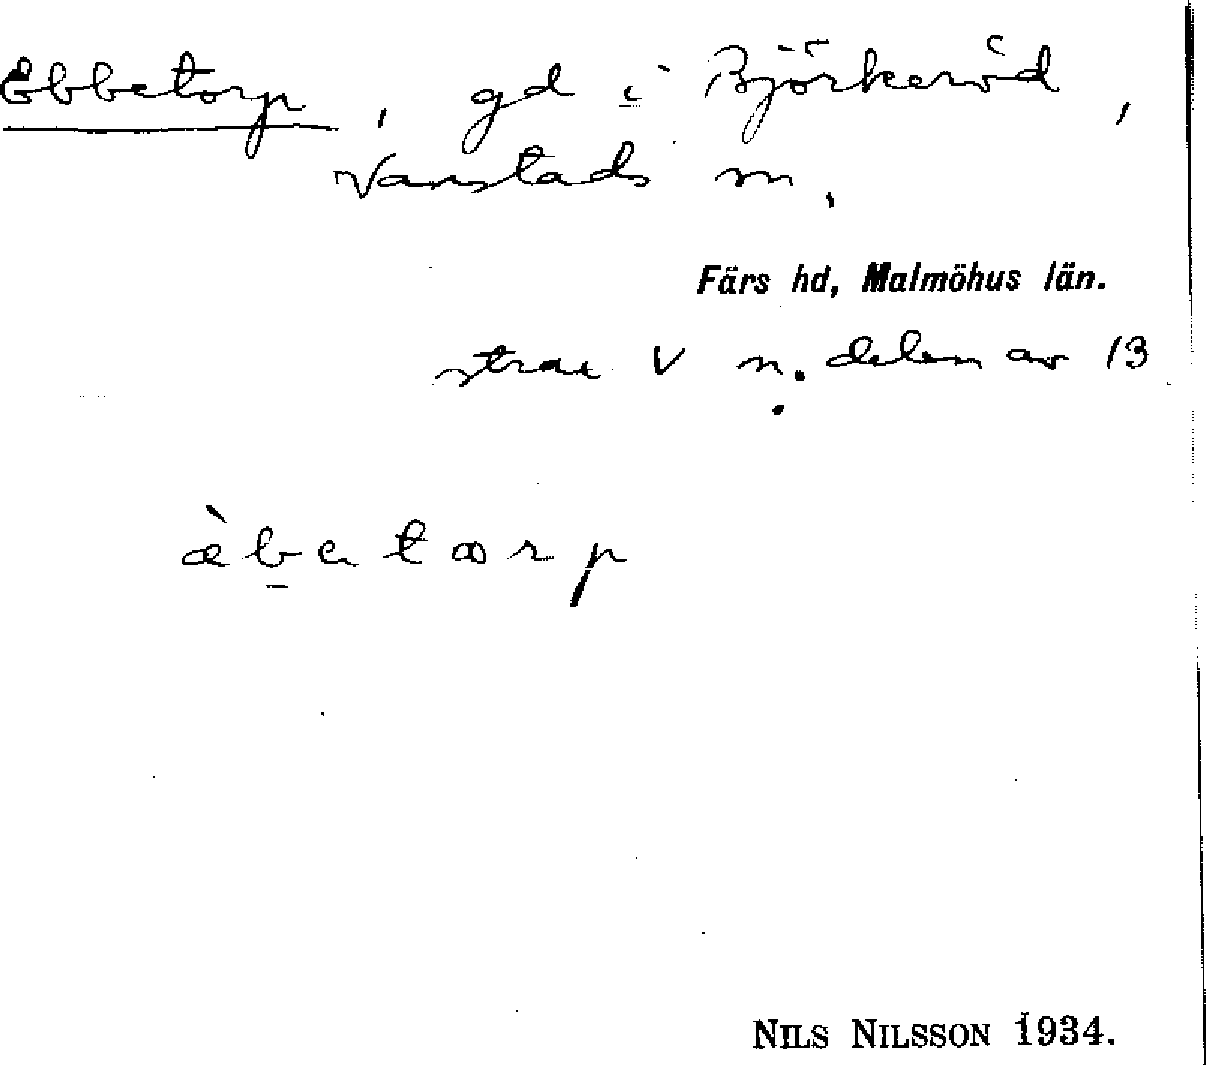 Ebbetorp, gd i Björkeröd,
Vanstads sn.
Färs hd, Malmöhus län.
strax V n. delen av 13
æ̀b̲etorp
NILS NILSSON 1934.